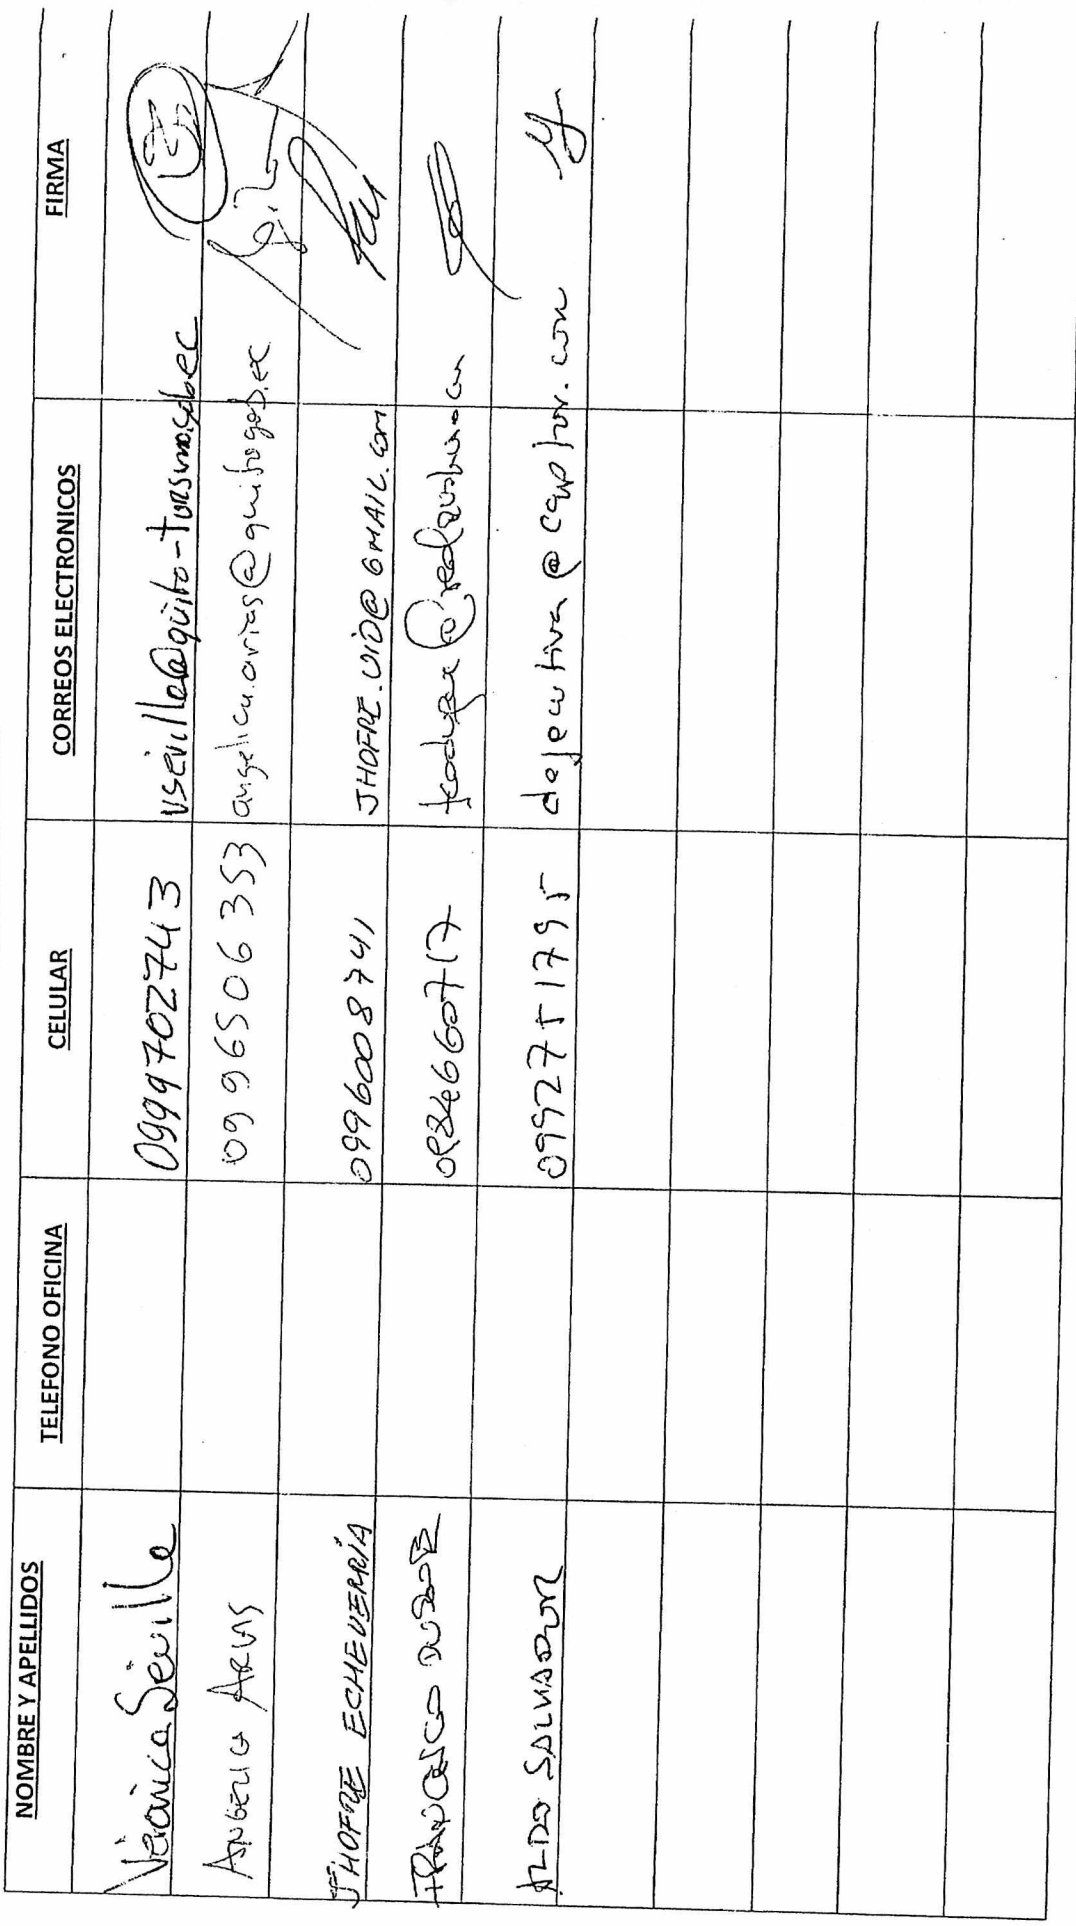 NOMBRE Y APELLIDOS TELEFONO OFICINA CELULAR CORREOS ELECTRONICOS FIRMA
Verónica Sevilla 0999702743 vsevilla@quito-turismo.gob.ec
ANGELICA ARIAS 0996506353 angelica.arias@quito.gob.ec
JHOFRE ECHEVERRÍA 0996008741 JHOFRE.VID@GMAIL.com
FRANCISCO 0984660717
ALDO SALVADOR 0992751795 dejecutiva@captur.com